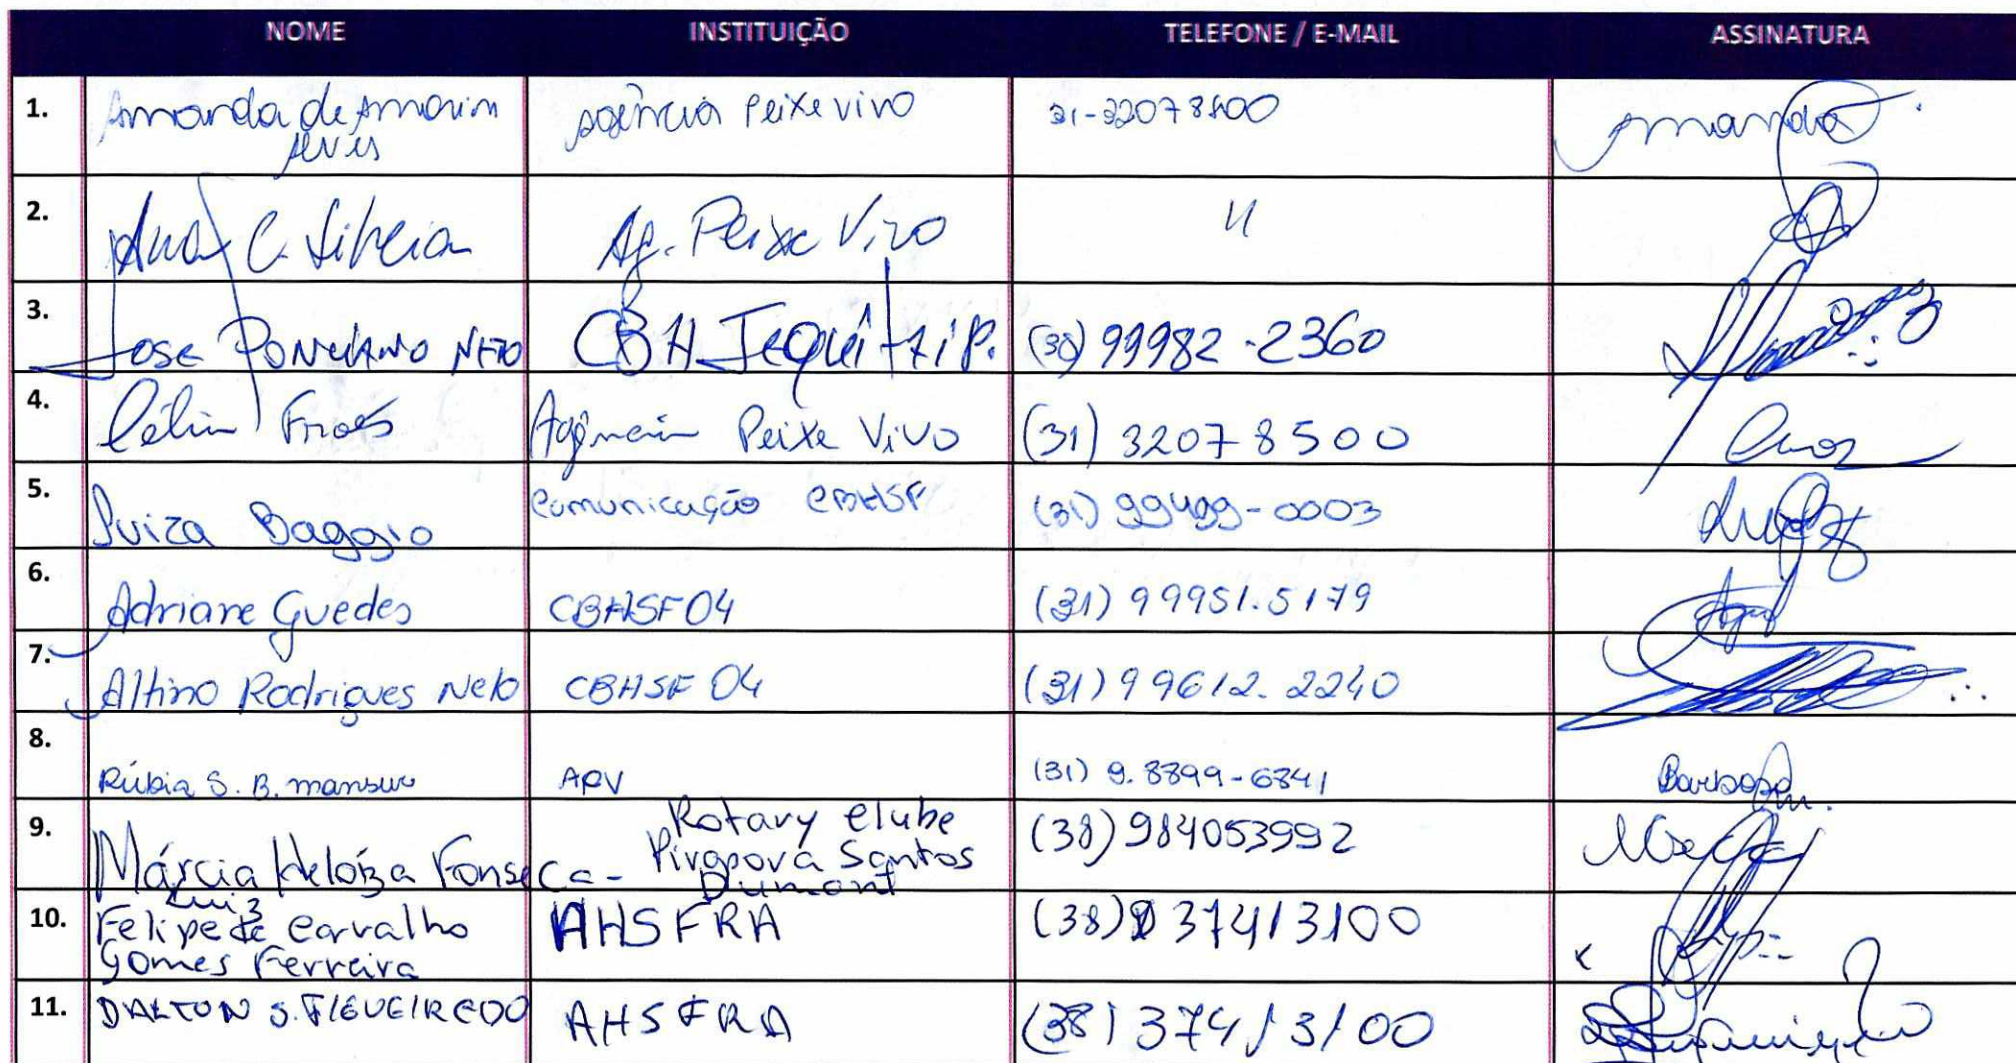 NOME INSTITUIÇÃO TELEFONE / E-MAIL ASSINATURA
1. Amanda de Amorim Agência Peixe vivo 31-32078500 Amanda
Alves
2. Ana C. Silveira Ag. Peixe Vivo 11
3. Jose PONCIANO NETO CBH Jequitaí P. (38) 99982-2360
4. Célia Froes Agência Peixe Vivo (31) 3207 8500
5. Luiza Baggio Comunicação CBHSF (31) 99499-0003
6. Adriane Guedes CBHSF 04 (31) 99951.5179
7. Altino Rodrigues Neto CBHSF 04 (31) 99612.2240
8. Rúbia S. B. mansur APV (31) 9.8899-6341 Barbosa
9. Márcia Heloíza Fonseca - Rotary Clube (38) 984053992
Pirapora Santos
Dumont
10. Felipe Luiz de Carvalho AHSFRA (38) 37413100 x
Gomes Ferreira
11. DALTON S. FIGUEIREDO AHSFRA (38) 3741 3100